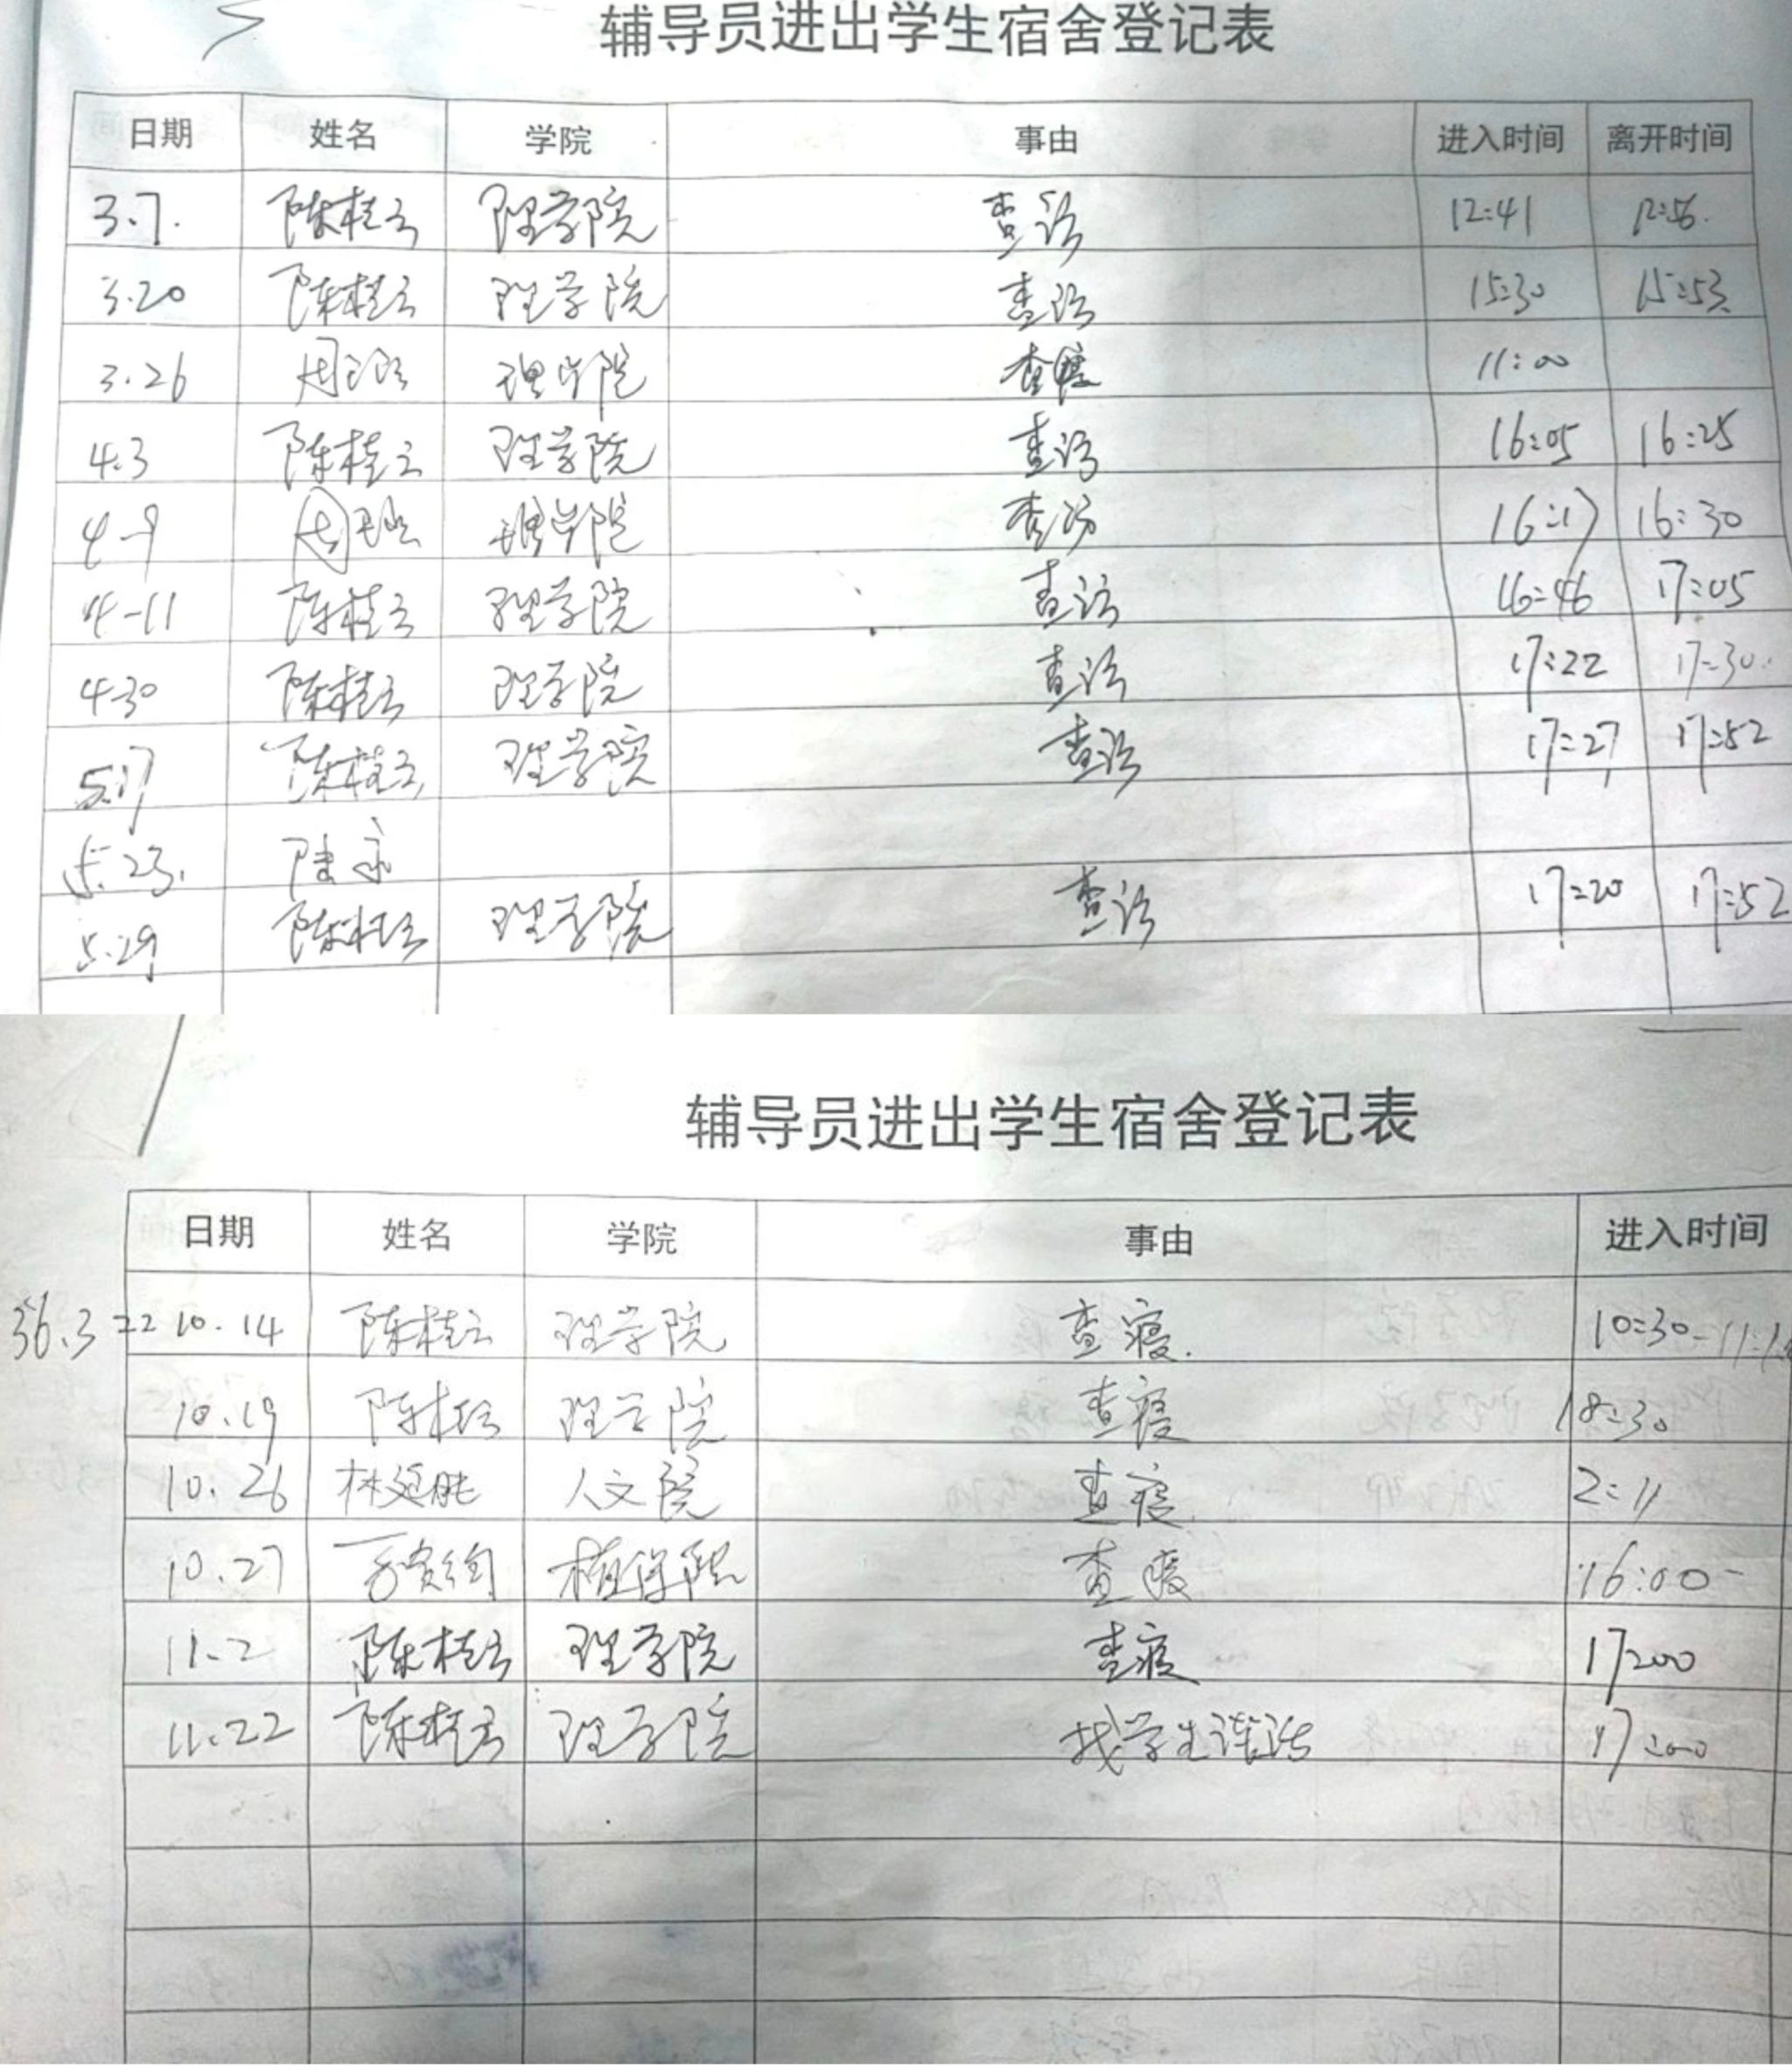 辅导员进出学生宿舍登记表
日期 姓名 学院 事由 进入时间 离开时间
3.7. 陈桂云 理学院 查访 12:41 12:56.
3.20 陈桂云 理学院 查访 15:30 15:53
3.26 理学院 查寝 11:00
4.3 陈桂云 理学院 查访 16:05 16:25
4-9 理学院 查访 16:17 16:30
4-11 陈桂云 理学院 查访 16:46 17:05
4-30 陈桂云 理学院 查访 17:22 17:30.
5.17 陈桂云 理学院 查访 17:27 17:52
5.23.
5.29 陈桂云 理学院 查访 17:20 17:52
辅导员进出学生宿舍登记表
日期 姓名 学院 事由 进入时间
36.3 22 10.14 陈桂云 理学院 查寝. 10:30-
10.19 陈桂云 理学院 查寝 18:30
10.26 林延胜 人文院 查寝 2:11
10.27 查寝 16:00-
11.2 陈桂云 理学院 查寝 17:00
11.22 陈桂云 理学院 找学生谈话 17:00